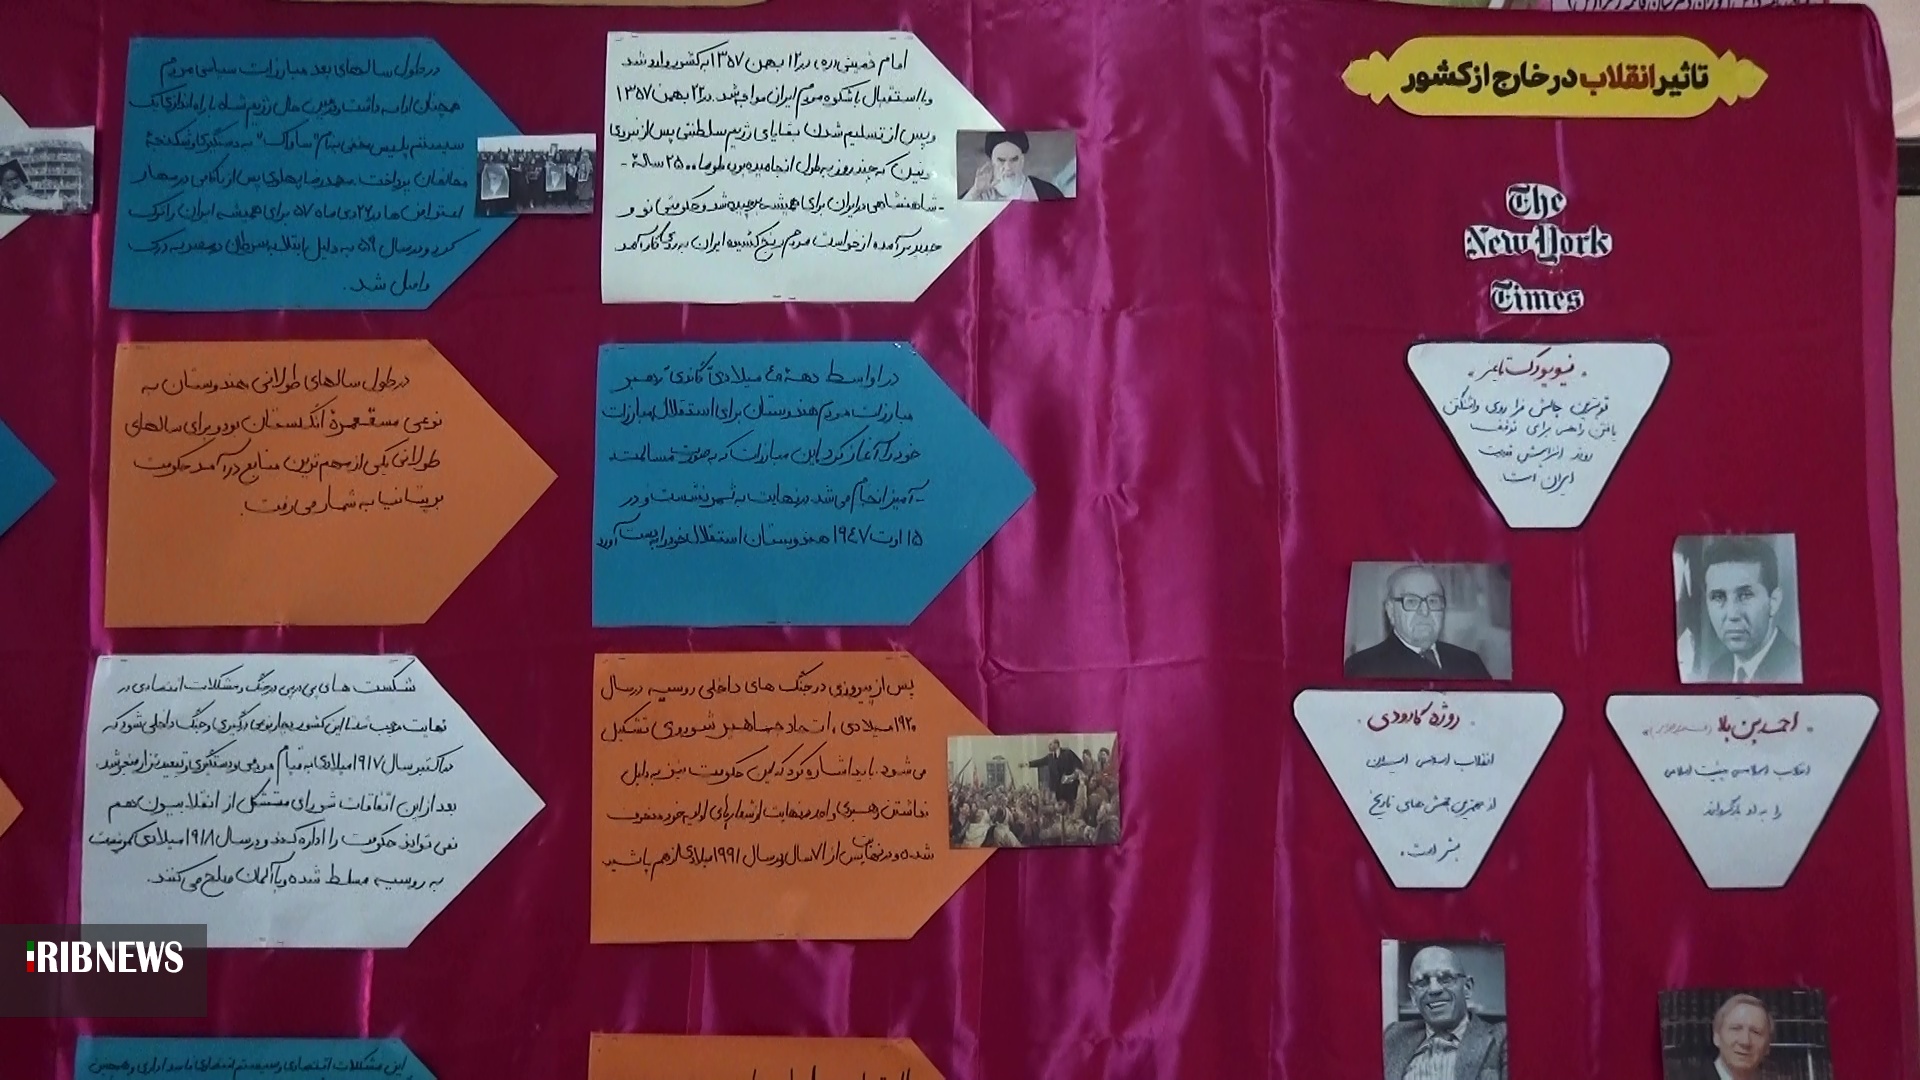 تاثیر انقلاب در خارج از کشور
The
New York
Times
نیویورک تایمز
قویترین چالش فرا روی واشنگتن
یافتن راهی برای توقف
روند افزایش قدرت
ایران است.
احمد بن بلا
انقلاب اسلامی هویت اسلامی
را به او بازگرداند
روژه گارودی
انقلاب اسلامی ایران
از جنبش های تاریخ
بشر است.
امام خمینی (ره) در ۱۲ بهمن ۱۳۵۷ به کشور وارد شد
و با استقبال باشکوه مردم ایران مواجه شد. در ۲۲ بهمن ۱۳۵۷
و پس از تسلیم شدن بقایای رژیم سلطنتی پس از نبردی
که چند روز به طول انجامیده بود، ۲۵۰۰ ساله
شاهنشاهی در ایران برای همیشه برچیده شد و حکومتی نو و
جدید برآمده از خواست مردم رنج کشیده ایران به روی کار آمد
در طول سالهای بعد مبارزات سیاسی مردم
همچنان ادامه داشت و در عین حال رژیم شاه با راه اندازی یک
سیستم پلیس مخفی بنام "ساواک" به دستگیری و شکنجهٔ
مخالفان پرداخت. محمدرضا پهلوی پس از ناکامی در مهار
اعتراض ها در ۲۶ دی ماه ۵۷ برای همیشه ایران را ترک
کرد و در سال ۵۹ به دلیل ابتلا به سرطان در مصر به درک
واصل شد.
در اواسط دهه ۴۰ میلادی گاندی رهبر
مبارزات مردم هندوستان برای استقلال، مبارزات
خود را آغاز کرد. این مبارزات که به صورت مسالمت
آمیز انجام می شد در نهایت به ثمر نشست و در
۱۵ اوت ۱۹۴۷ هندوستان استقلال خود را به دست آورد
در طول سالهای طولانی هندوستان به
نوعی مستعمرهٔ انگلستان بود و برای سالهای
طولانی یکی از مهم ترین منابع درآمد حکومت
بریتانیا به شمار می رفت.
پس از پیروزی در جنگ های داخلی روسیه در سال
۱۹۲۰ میلادی، اتحاد جماهیر شوروی تشکیل
می شود. باید اشاره کرد که این حکومت نیز به دلیل
نداشتن رهبری واحد در نهایت از شعارهای اولیه خود منحرف
شده و در نهایت پس از ۷۱ سال در سال ۱۹۹۱ میلادی از هم پاشید.
شکست های پی در پی در جنگ و مشکلات اقتصادی در
نهایت موجب شد این کشور به نوعی درگیری و جنگ داخلی شود که
در اکتبر سال ۱۹۱۷ میلادی به قیام مردمی و دستگیری و تبعید تزار منجر شد.
بعد از این اتفاقات شورای متشکل از انقلابیون هم
نمی تواند حکومت را اداره کند و در سال ۱۹۱۸ میلادی کمونیست
به روسیه مسلط شده و با آلمان صلح می کنند.
این مشکلات اقتصادی و سیستم اقتصادی
IRIBNEWS